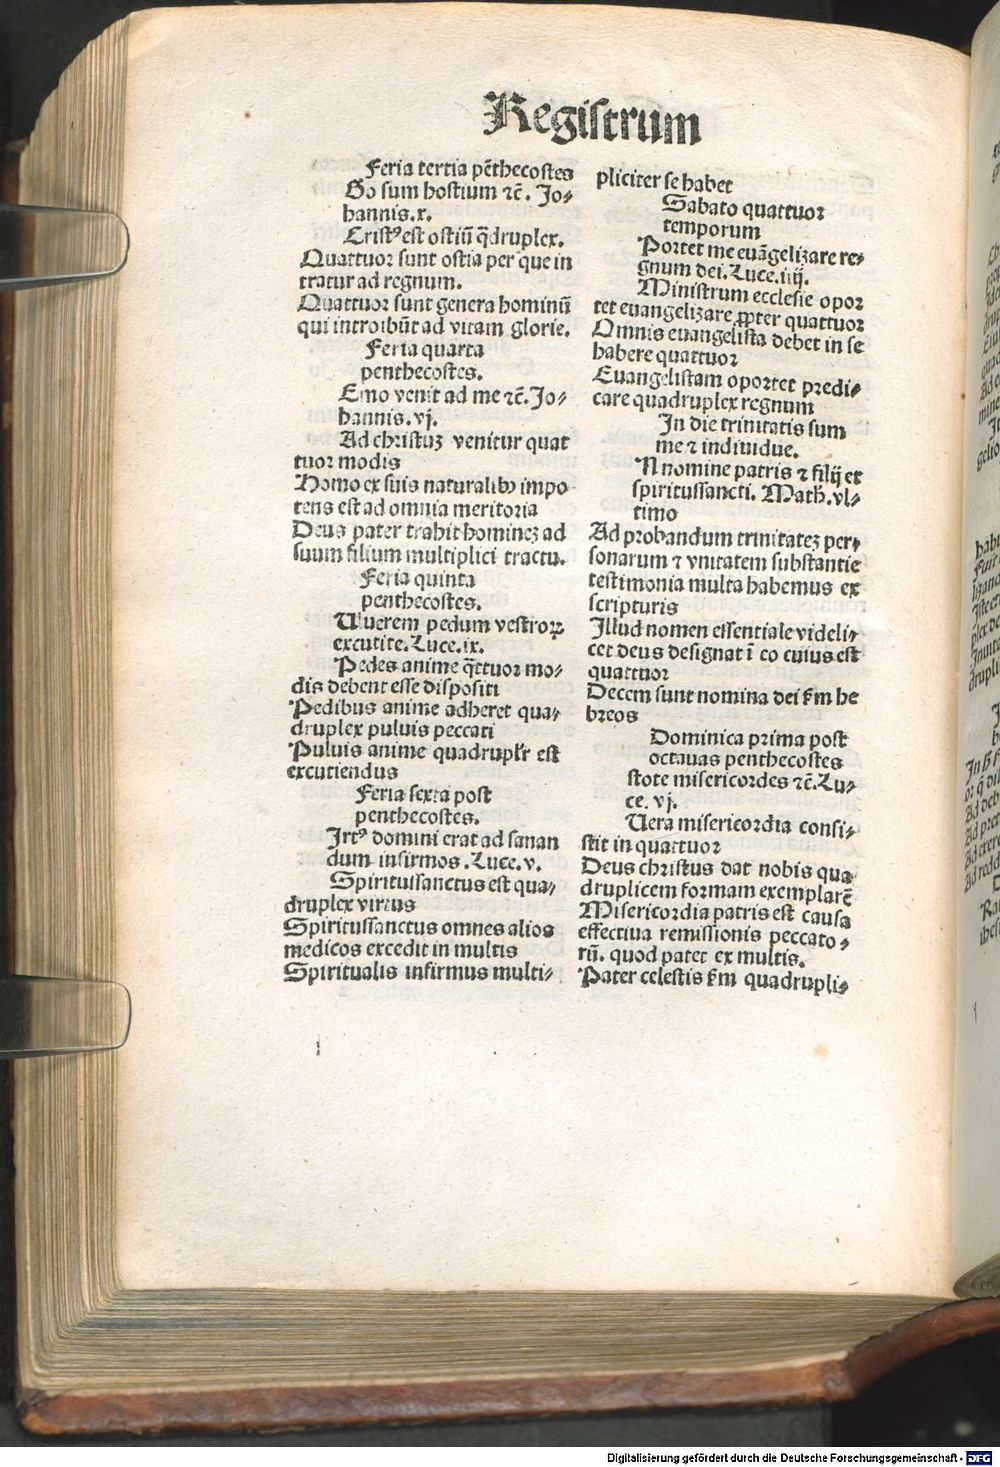 Regiſtrum
Feria tertia pēthecoſtes
Go ſum hoſtium ⁊č. Jo⸗
hannis.x.
Criſtꝰ eſt oſtiū q̄druplex.
Quattuor ſunt oſtia per que in
tratur ad regnum.
Quattuor ſunt genera hominū
qui introibūt ad vitam glorie.
Feria quarta
penthecoſtes.
Emo venit ad me ⁊č. Jo⸗
hannis.vj.
Ad chriſtuꝫ venitur quat
tuor modis
Homo ex ſuis naturalibꝰ impo
tens eſt ad omnia meritoria
Deus pater trahit homineꝫ ad
ſuum filium multiplici tractu.
Feria quinta
penthecoſtes.
Uluerem pedum veſtroꝝ
excutite.Luce.ix.
Pedes anime q̄ttuor mo⸗
dis debent eſſe diſpoſiti
Pedibus anime adheret qua⸗
druplex puluis peccati
Puluis anime quadruplꝛ eſt
excutiendus
Feria ſexta poſt
penthecoſtes.
Jrtꝰ domini erat ad ſanan
dum infirmos.Luce.v.
Spirituſſanctus eſt qua⸗
druplex virtus
Spirituſſanctus omnes alios
medicos excedit in multis
Spiritualis infirmus multi⸗
pliciter ſe habet
Sabato quattuor
temporum
Portet me euāgelizare re⸗
gnum dei.Luce.iiij.
Miniſtrum eccleſie opor
tet euangelizare ꝓpter quattuor
Omnis euangeliſta debet in ſe
habere quattuor
Euangeliſtam oportet predi⸗
care quadruplex regnum
In die trinitatis ſum
me ⁊ indiuidue.
N nomine patris ⁊ filij et
ſpirituſſancti. Math̄.vl⸗
timo
Ad probandum trinitateꝫ per⸗
ſonarum ⁊ vnitatem ſubſtantie
teſtimonia multa habemus ex
ſcripturis
Illud nomen eſſentiale videli⸗
cet deus deſignat ī eo cuius eſt
quattuor
Decem ſunt nomina dei ẜm he
breos
Dominica prima poſt
octauas penthecoſtes
ſtote miſericordes ⁊č.Lu⸗
ce. vj.
Uera miſericordia conſi⸗
ſtit in quattuor
Deus chriſtus dat nobis qua
druplicem formam exemplarē
Miſericordia patris eſt cauſa
effectiua remiſſionis peccato⸗
rū. quod patet ex multis.
Pater celeſtis ẜm quadrupli⸗
Digitalisierung gefördert durch die Deutsche Forschungsgemeinschaft - DFG